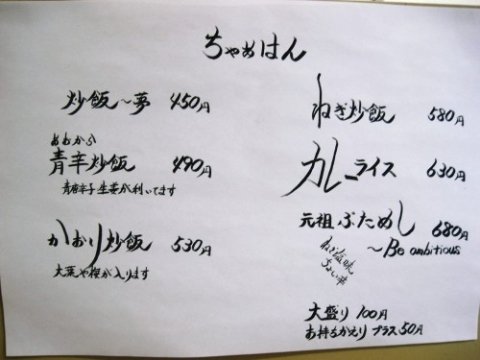 ちゃあはん
炒飯～夢 450円
あおから
青辛炒飯 490円
青唐辛子生姜が利いてます
かおり炒飯 530円
大葉や桜が入ります
ねぎ炒飯 580円
カレーライス 630円
元祖ぶためし 680円
～Be ambitious
ねぎ塩味
ちょい辛
大盛り 100円
お持ちかえり プラス50円